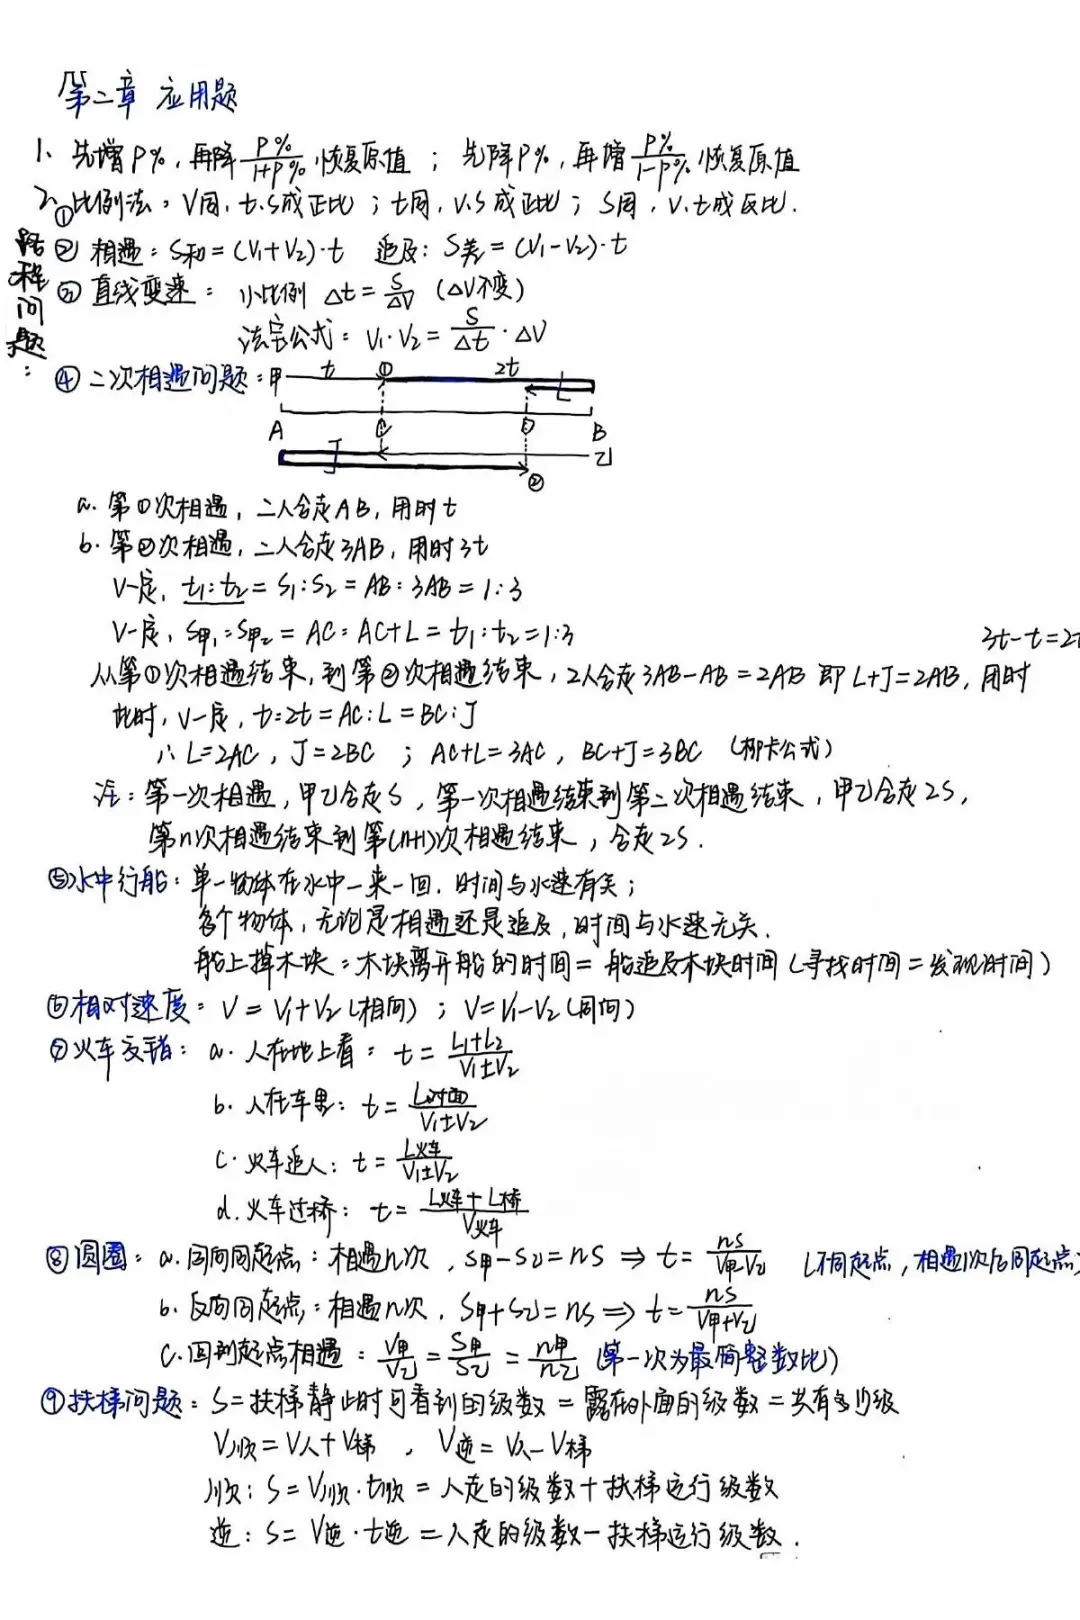 第二章 应用题
1、先增P%，再降 P%/(1+P%) 恢复原值；先降P%，再增 P%/(1-P%) 恢复原值
路程问题：
2、①比例法：V同，t.S成正比；t同，V.S成正比；S同，V.t成反比.
② 相遇：S和=(V₁+V₂)·t 追及：S差=(V₁-V₂)·t
③ 直线变速： 小比例 Δt=S/ΔV (ΔV不变)
法宝公式：V₁·V₂=S/Δt·ΔV
④ 二次相遇问题：甲 t ① 2t L
A C D B
J 乙
②
a. 第①次相遇，二人合走AB，用时t
b. 第②次相遇，二人合走3AB，用时3t
V一定，t₁:t₂=S₁:S₂=AB:3AB=1:3
V一定，S甲₁:S甲₂=AC:AC+L=t₁:t₂=1:3
3t-t=2t
从第①次相遇结束，到第②次相遇结束，2人合走3AB-AB=2AB 即L+J=2AB，用时
此时，V一定，t:2t=AC:L=BC:J
∴L=2AC，J=2BC；AC+L=3AC，BC+J=3BC（柳卡公式）
注：第一次相遇，甲乙合走S，第一次相遇结束到第二次相遇结束，甲乙合走2S，
第n次相遇结束到第(n+1)次相遇结束，合走2S.
⑤水中行船：单一物体在水中一来一回，时间与水速有关；
多个物体，无论是相遇还是追及，时间与水速无关.
船上掉木块：木块离开船的时间=船追及木块时间(寻找时间=发现时间)
⑥相对速度：V=V₁+V₂(相向)；V=V₁-V₂(同向)
⑦火车交错：a. 人在地上看：t=(L₁+L₂)/(V₁±V₂)
b. 人在车里：t=L对面/(V₁±V₂)
c. 火车追人：t=L火车/(V₁±V₂)
d. 火车过桥：t=(L火车+L桥)/V火车
⑧圆圈：a. 同向同起点：相遇n次，S甲-S乙=nS⇒t=nS/(V甲-V乙) (不同起点，相遇1次后同起点)
b. 反向同起点：相遇n次，S甲+S乙=nS⇒t=nS/(V甲+V乙)
c. 回到起点相遇：V甲/V乙=S甲/S乙=n甲/n乙 (第一次为最简整数比)
⑨扶梯问题：S=扶梯静止时可看到的级数=露在外面的级数=共有多少级
V顺=V人+V梯，V逆=V人-V梯
顺：S=V顺·t顺=人走的级数+扶梯运行级数
逆：S=V逆·t逆=人走的级数-扶梯运行级数.